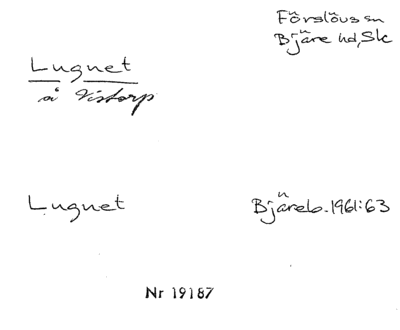 Förslövs sn
Bjäre hd, Sk
Lugnet
å Vistorp
Lugnet
Bjäreb. 1961:63
Nr 19187